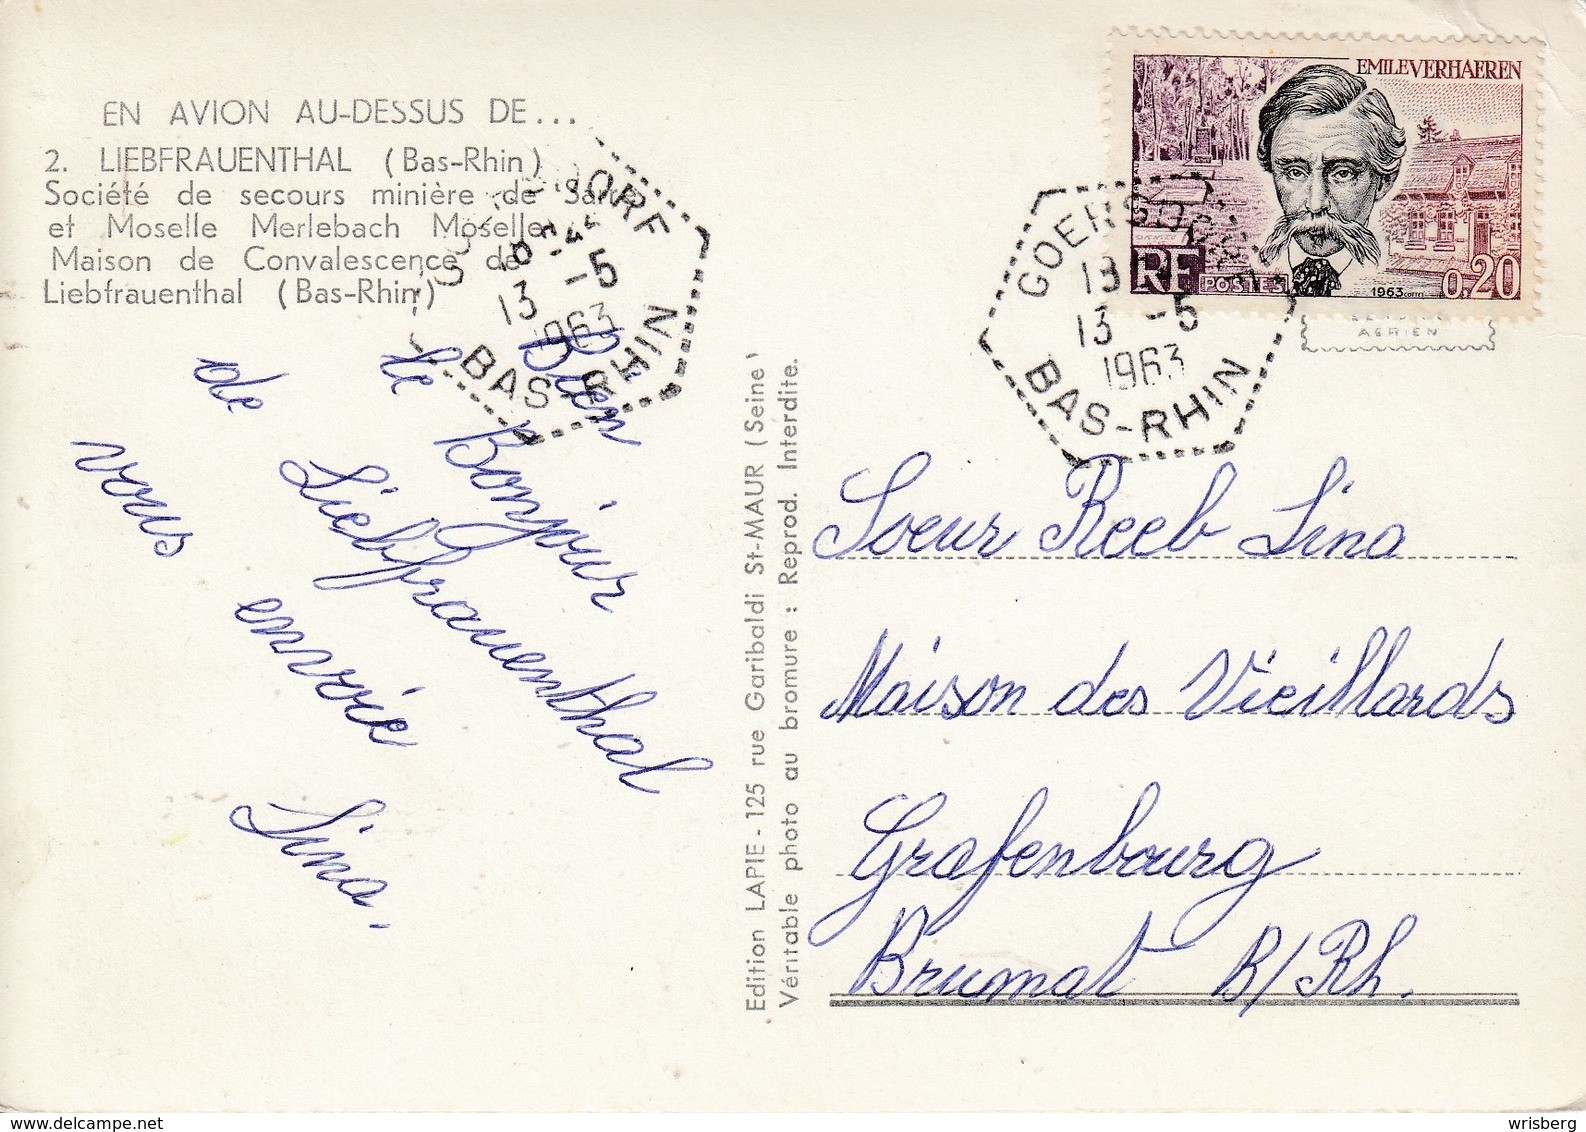 EN AVION AU-DESSUS DE...
2. LIEBFRAUENTHAL (Bas-Rhin)
Société de secours minière de Sarre
et Moselle Merlebach Moselle
Maison de Convalescence de
Liebfrauenthal (Bas-Rhin)
GOERSDORF
18
13 -5
1963
BAS-RHIN
EMILE VERHAEREN
RF
POSTES
1963
0,20
GOERSDORF
13 -5
1963
BAS-RHIN
AERIEN
Bien
le Bonjour
de Liebfrauenthal
vous envoie
Lina.
Edition LAPIE - 125 rue Garibaldi St-MAUR (Seine)
Véritable photo au bromure : Reprod. Interdite.
Soeur Reeb Lina
Maison des Vieillards
Grafenbourg
Brumat B/Rh.
wrisberg